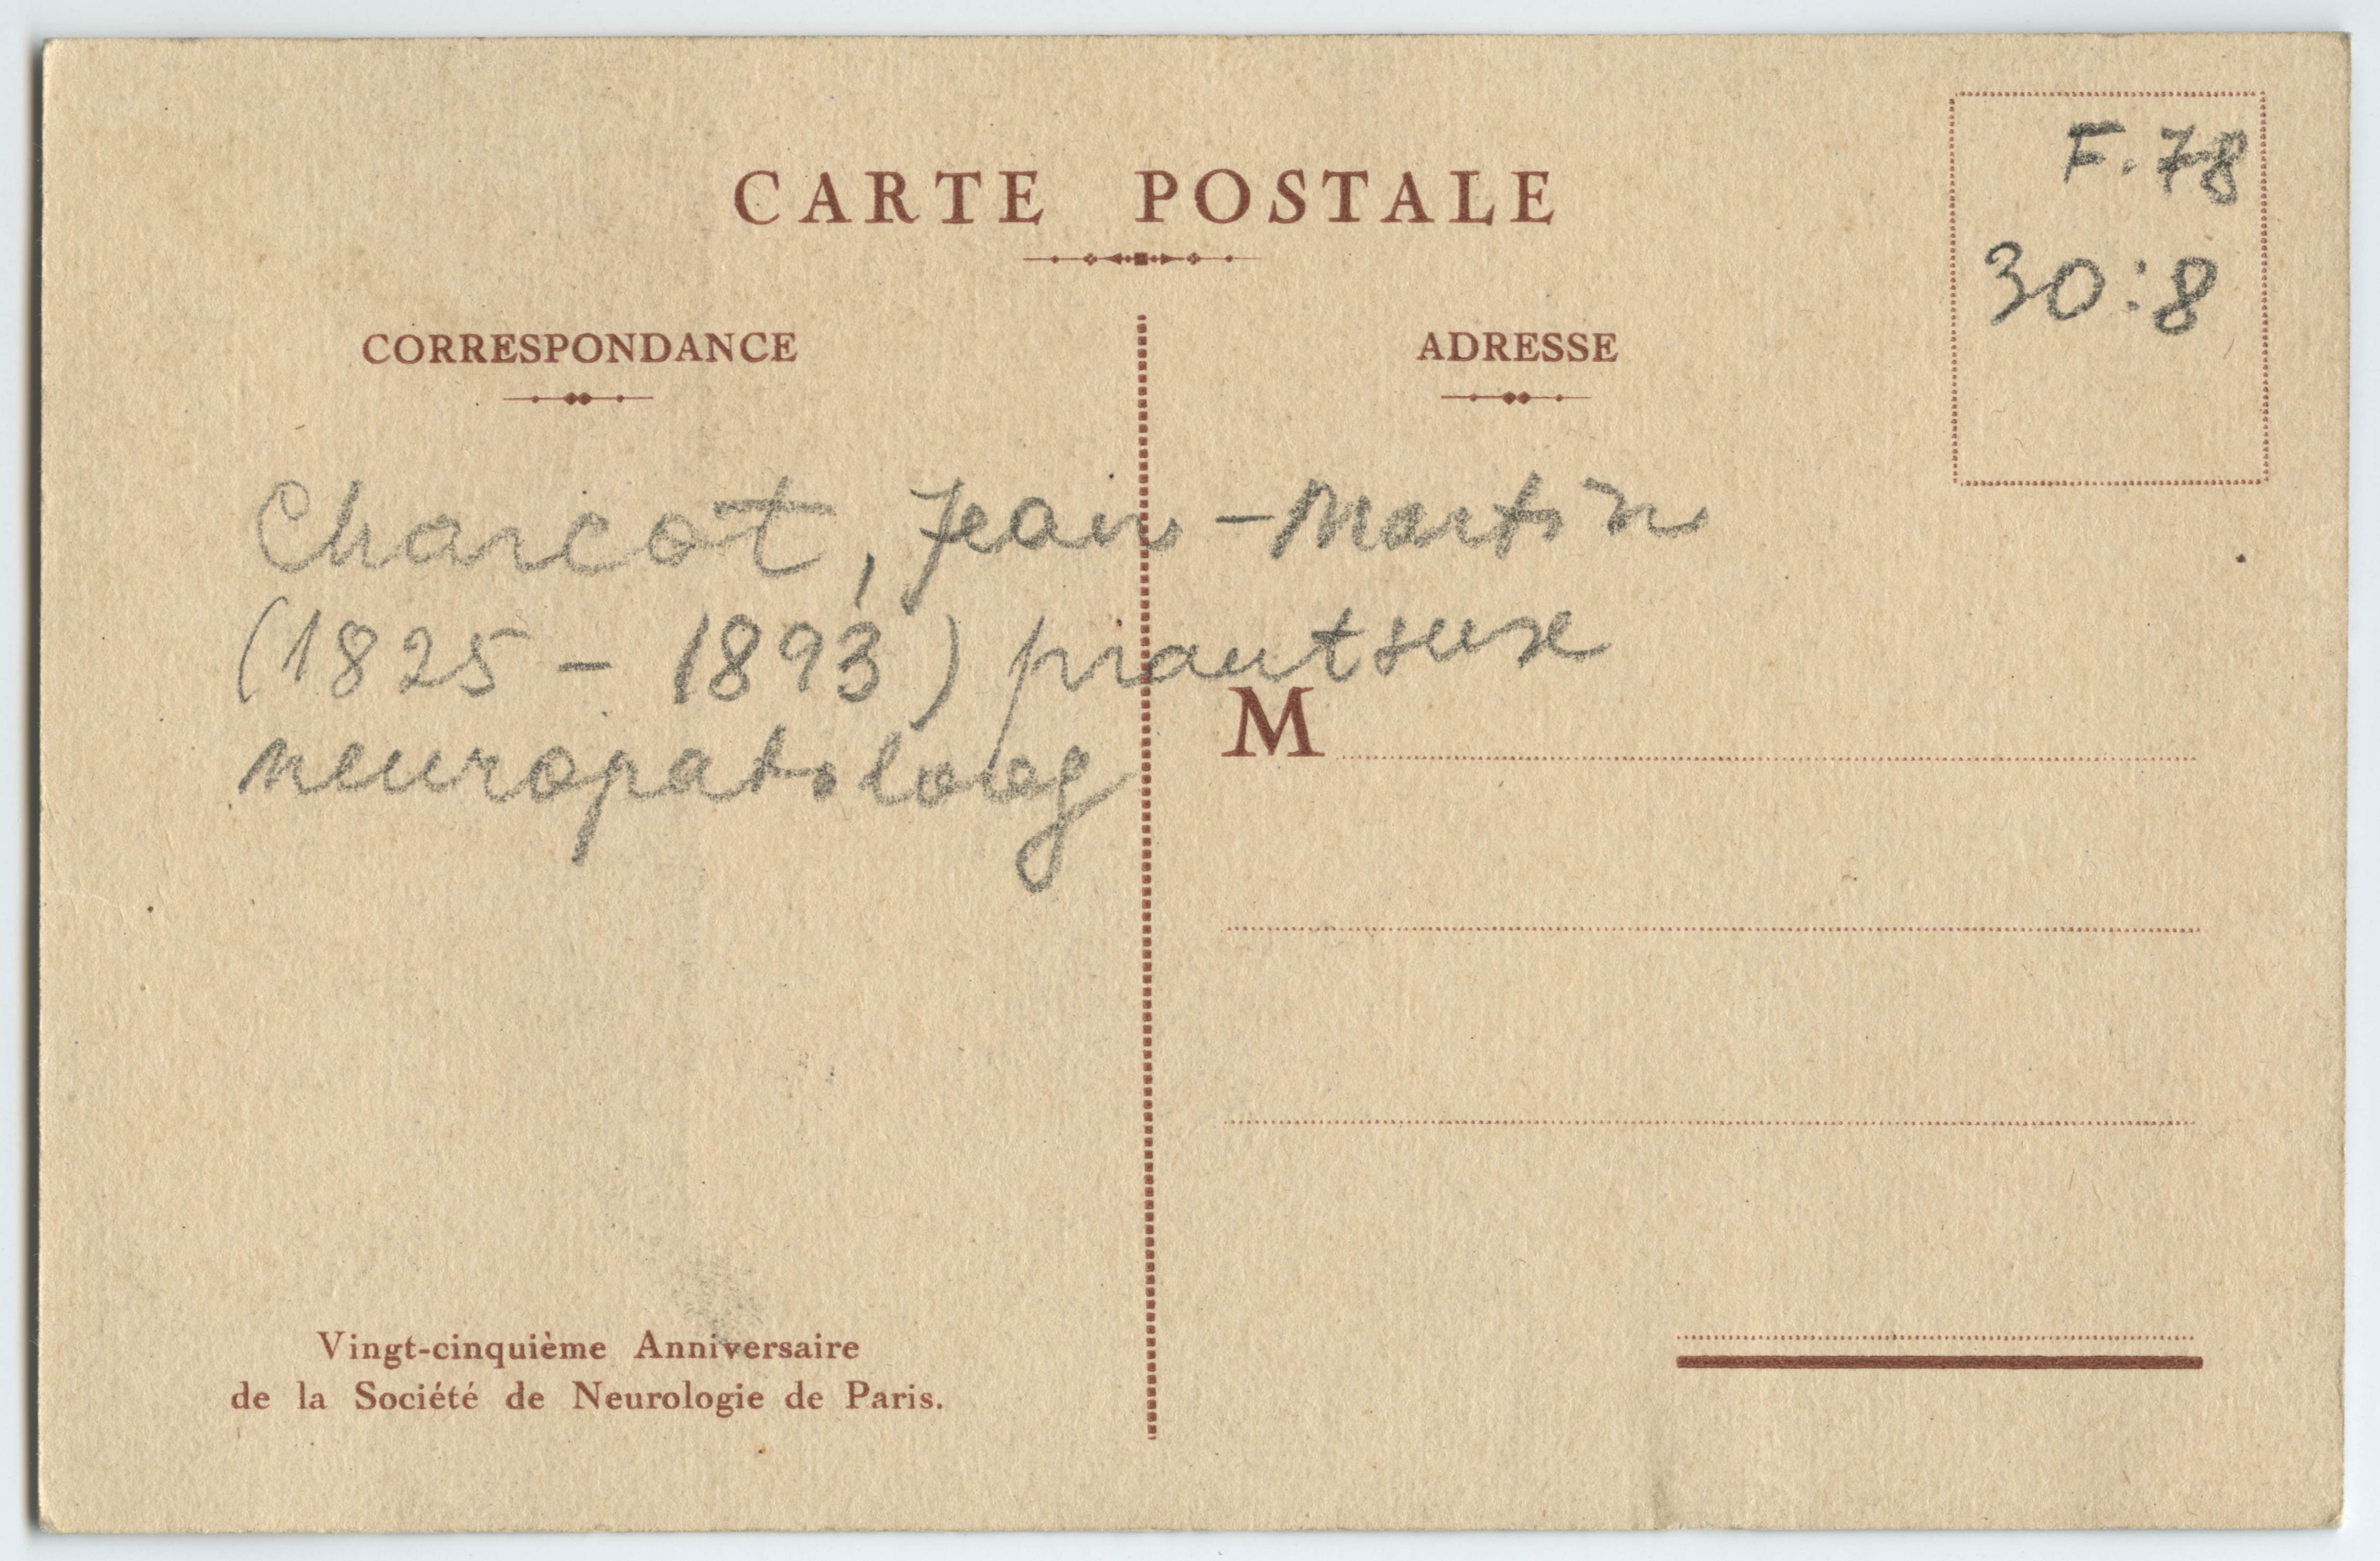 CARTE POSTALE
F.78
30:8
CORRESPONDANCE
ADRESSE
Charcot, Jean-Martin
(1825 - 1893) prantsuse
neuropatoloog
M
Vingt-cinquième Anniversaire
de la Société de Neurologie de Paris.